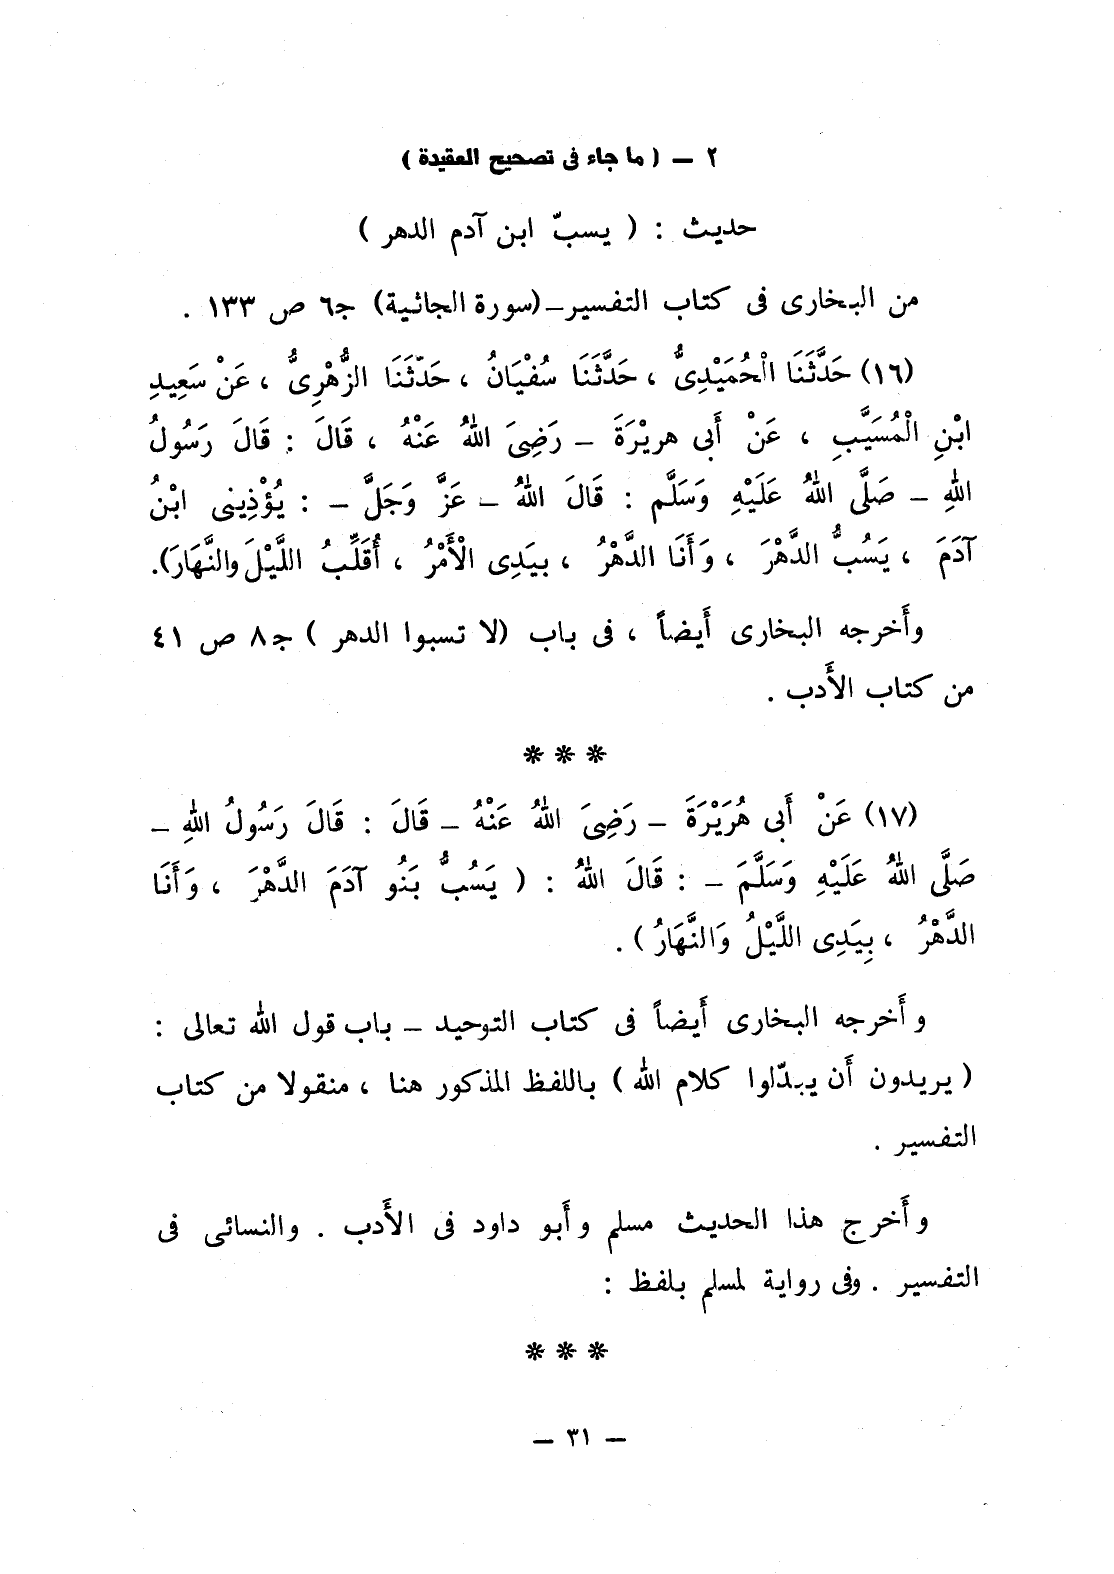 ٢ – ( ما جاء فى تصحيح العقيدة )
حديث : ( يسبّ ابن آدم الدهر )
من البخارى فى كتاب التفسير – (سورة الجاثية) جـ٦ ص ١٣٣ .
(١٦) حَدَّثَنَا الْحُمَيْدِىُّ ، حَدَّثَنَا سُفْيَانُ ، حَدّثَنَا الزُّهْرِىُّ ، عَنْ سَعِيدِ
ابْنِ الْمُسَيَّبِ ، عَنْ أَبى هريْرَةَ – رَضِىَ اللهُ عَنْهُ ، قَالَ : قَالَ رَسُولُ
اللهِ – صَلَّى اللهُ عَلَيْهِ وَسَلَّم : قَالَ اللهُ – عَزَّ وَجَلَّ – : يُؤْذِينى ابْنُ
آدَمَ ، يَسُبُّ الدَّهْرَ ، وَأَنَا الدَّهْرُ ، بيَدِى الْأَمْرُ ، أُقَلِّبُ اللَّيْلَ والنَّهَارَ).
وأَخرجه البخارى أَيضاً ، فى باب (لا تسبوا الدهر ) جـ٨ ص ٤١
من كتاب الأَدب .
* * *
(١٧) عَنْ أَبى هُرَيْرَةَ – رَضِىَ اللهُ عَنْهُ – قَالَ : قَالَ رَسُولُ اللهِ –
صَلَّى اللهُ عَلَيْهِ وَسَلَّمَ – : قَالَ اللهُ : ( يَسُبُّ بَنُو آدَمَ الدَّهْرَ ، وَأَنَا
الدَّهْرُ ، بِيَدِى اللَّيْلُ وَالنَّهَارُ ) .
وأَخرجه البخارى أَيضاً فى كتاب التوحيد – باب قول الله تعالى :
( يريدون أَن يبدّلوا كلام الله ) باللفظ المذكور هنا ، منقولا من كتاب
التفسير .
وأَخرج هذا الحديث مسلم وأَبو داود فى الأَدب . والنسائى فى
التفسير . وفى رواية لمسلم بلفظ :
* * *
– ٣١ –